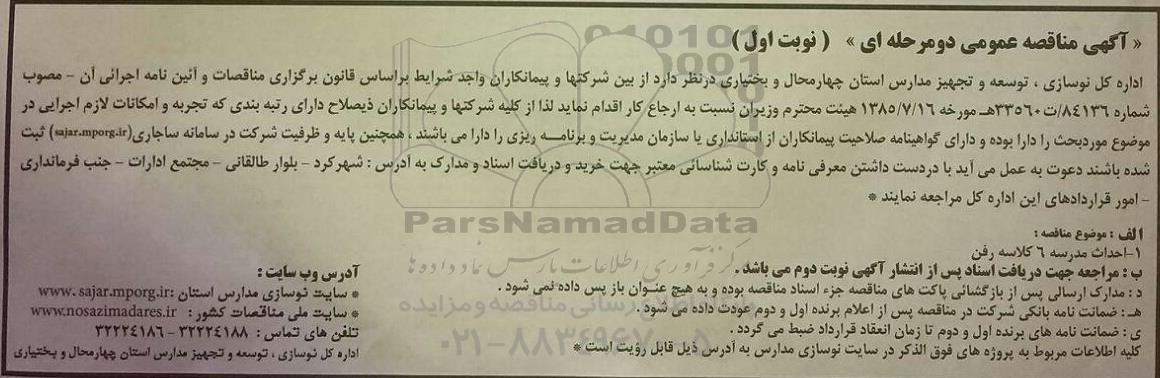 « آگهی مناقصه عمومی دومرحله ای » ( نوبت اول )
اداره کل نوسازی ، توسعه و تجهیز مدارس استان چهارمحال و بختیاری درنظر دارد از بین شرکتها و پیمانکاران واجد شرایط براساس قانون برگزاری مناقصات و آئین نامه اجرائی آن - مصوب
شماره ۸۴۱۳۶/ت۳۳۵۶۰هـ مورخه ۱۳۸۵/۷/۱۶ هیئت محترم وزیران نسبت به ارجاع کار اقدام نماید لذا از کلیه شرکتها و پیمانکاران ذیصلاح دارای رتبه بندی که تجربه و امکانات لازم اجرایی در
موضوع موردبحث را دارا بوده و دارای گواهینامه صلاحیت پیمانکاران از استانداری یا سازمان مدیریت و برنامه ریزی را دارا می باشند ، همچنین پایه و ظرفیت شرکت در سامانه ساجاری(sajar.mporg.ir) ثبت
شده باشند دعوت به عمل می آید با دردست داشتن معرفی نامه و کارت شناسائی معتبر جهت خرید و دریافت اسناد و مدارک به آدرس : شهرکرد - بلوار طالقانی - مجتمع ادارات - جنب فرمانداری
- امور قراردادهای این اداره کل مراجعه نمایند *
الف : موضوع مناقصه :
۱-احداث مدرسه ۶ کلاسه رفن
ب : مراجعه جهت دریافت اسناد پس از انتشار آگهی نوبت دوم می باشد .
د : مدارک ارسالی پس از بازگشائی پاکت های مناقصه جزء اسناد مناقصه بوده و به هیچ عنوان باز پس داده نمی شود .
هـ : ضمانت نامه بانکی شرکت در مناقصه پس از اعلام برنده اول و دوم عودت داده می شود .
ی : ضمانت نامه های برنده اول و دوم تا زمان انعقاد قرارداد ضبط می گردد .
کلیه اطلاعات مربوط به پروژه های فوق الذکر در سایت نوسازی مدارس به آدرس ذیل قابل رؤیت است *
آدرس وب سایت :
* سایت نوسازی مدارس استان :www. sajar.mporg.ir
* سایت ملی مناقصات کشور : www.nosazimadares.ir
تلفن های تماس : ۳۲۲۲۴۱۸۸ - ۳۲۲۲۴۱۸۶
اداره کل نوسازی ، توسعه و تجهیز مدارس استان چهارمحال و بختیاری
ParsNamadData
مرکز فرآوری اطلاعات پارس نماد داده ها
پایگاه اطلاع رسانی مناقصه و مزایده
۰۲۱-۸۸۳۴۹۶۷۰-۵